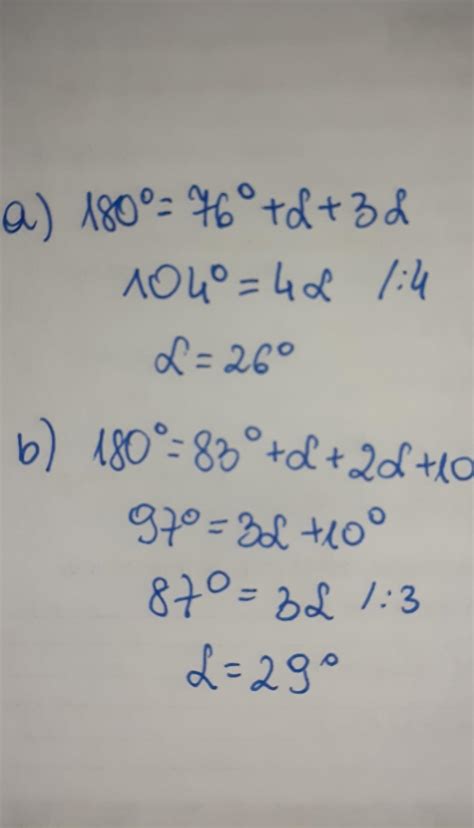 a) 180° = 76° + α + 3α
104° = 4α /:4
α = 26°
b) 180° = 83° + α + 2α + 10
97° = 3α + 10°
87° = 3α /:3
α = 29°